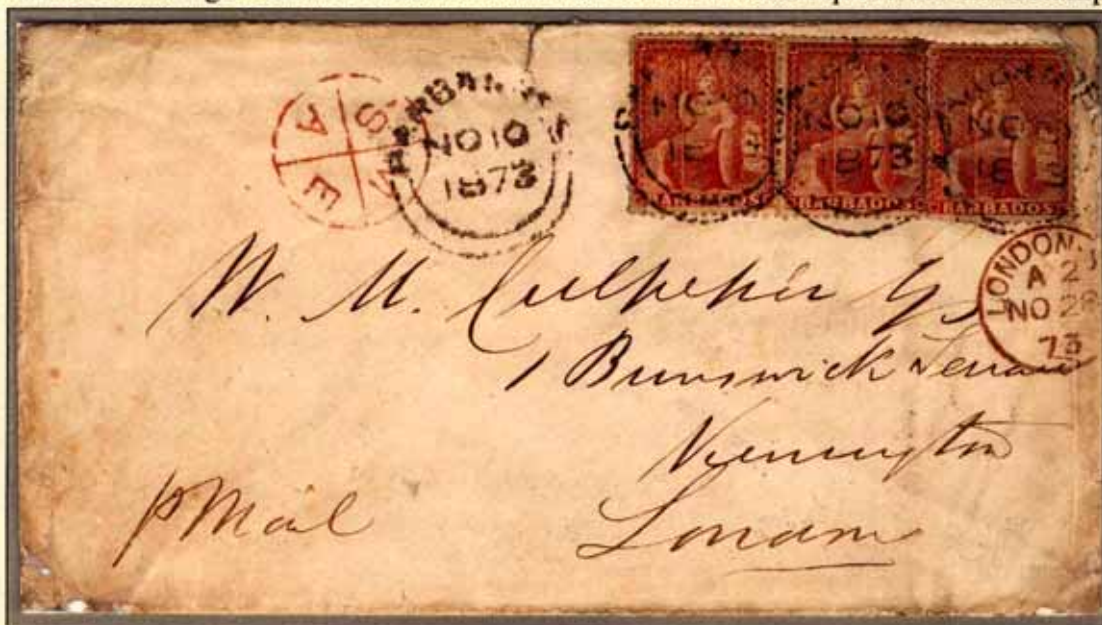 A S
E W
BARBADOS
NO 10
1873
NO
NO 10
1873
NO
BARBADOS
BARBADOS
BARBADOS
LONDON
A 2
NO 28
73
W. M. Culpeper
1 Brunswick Terrace
Kennington
London
p Mail